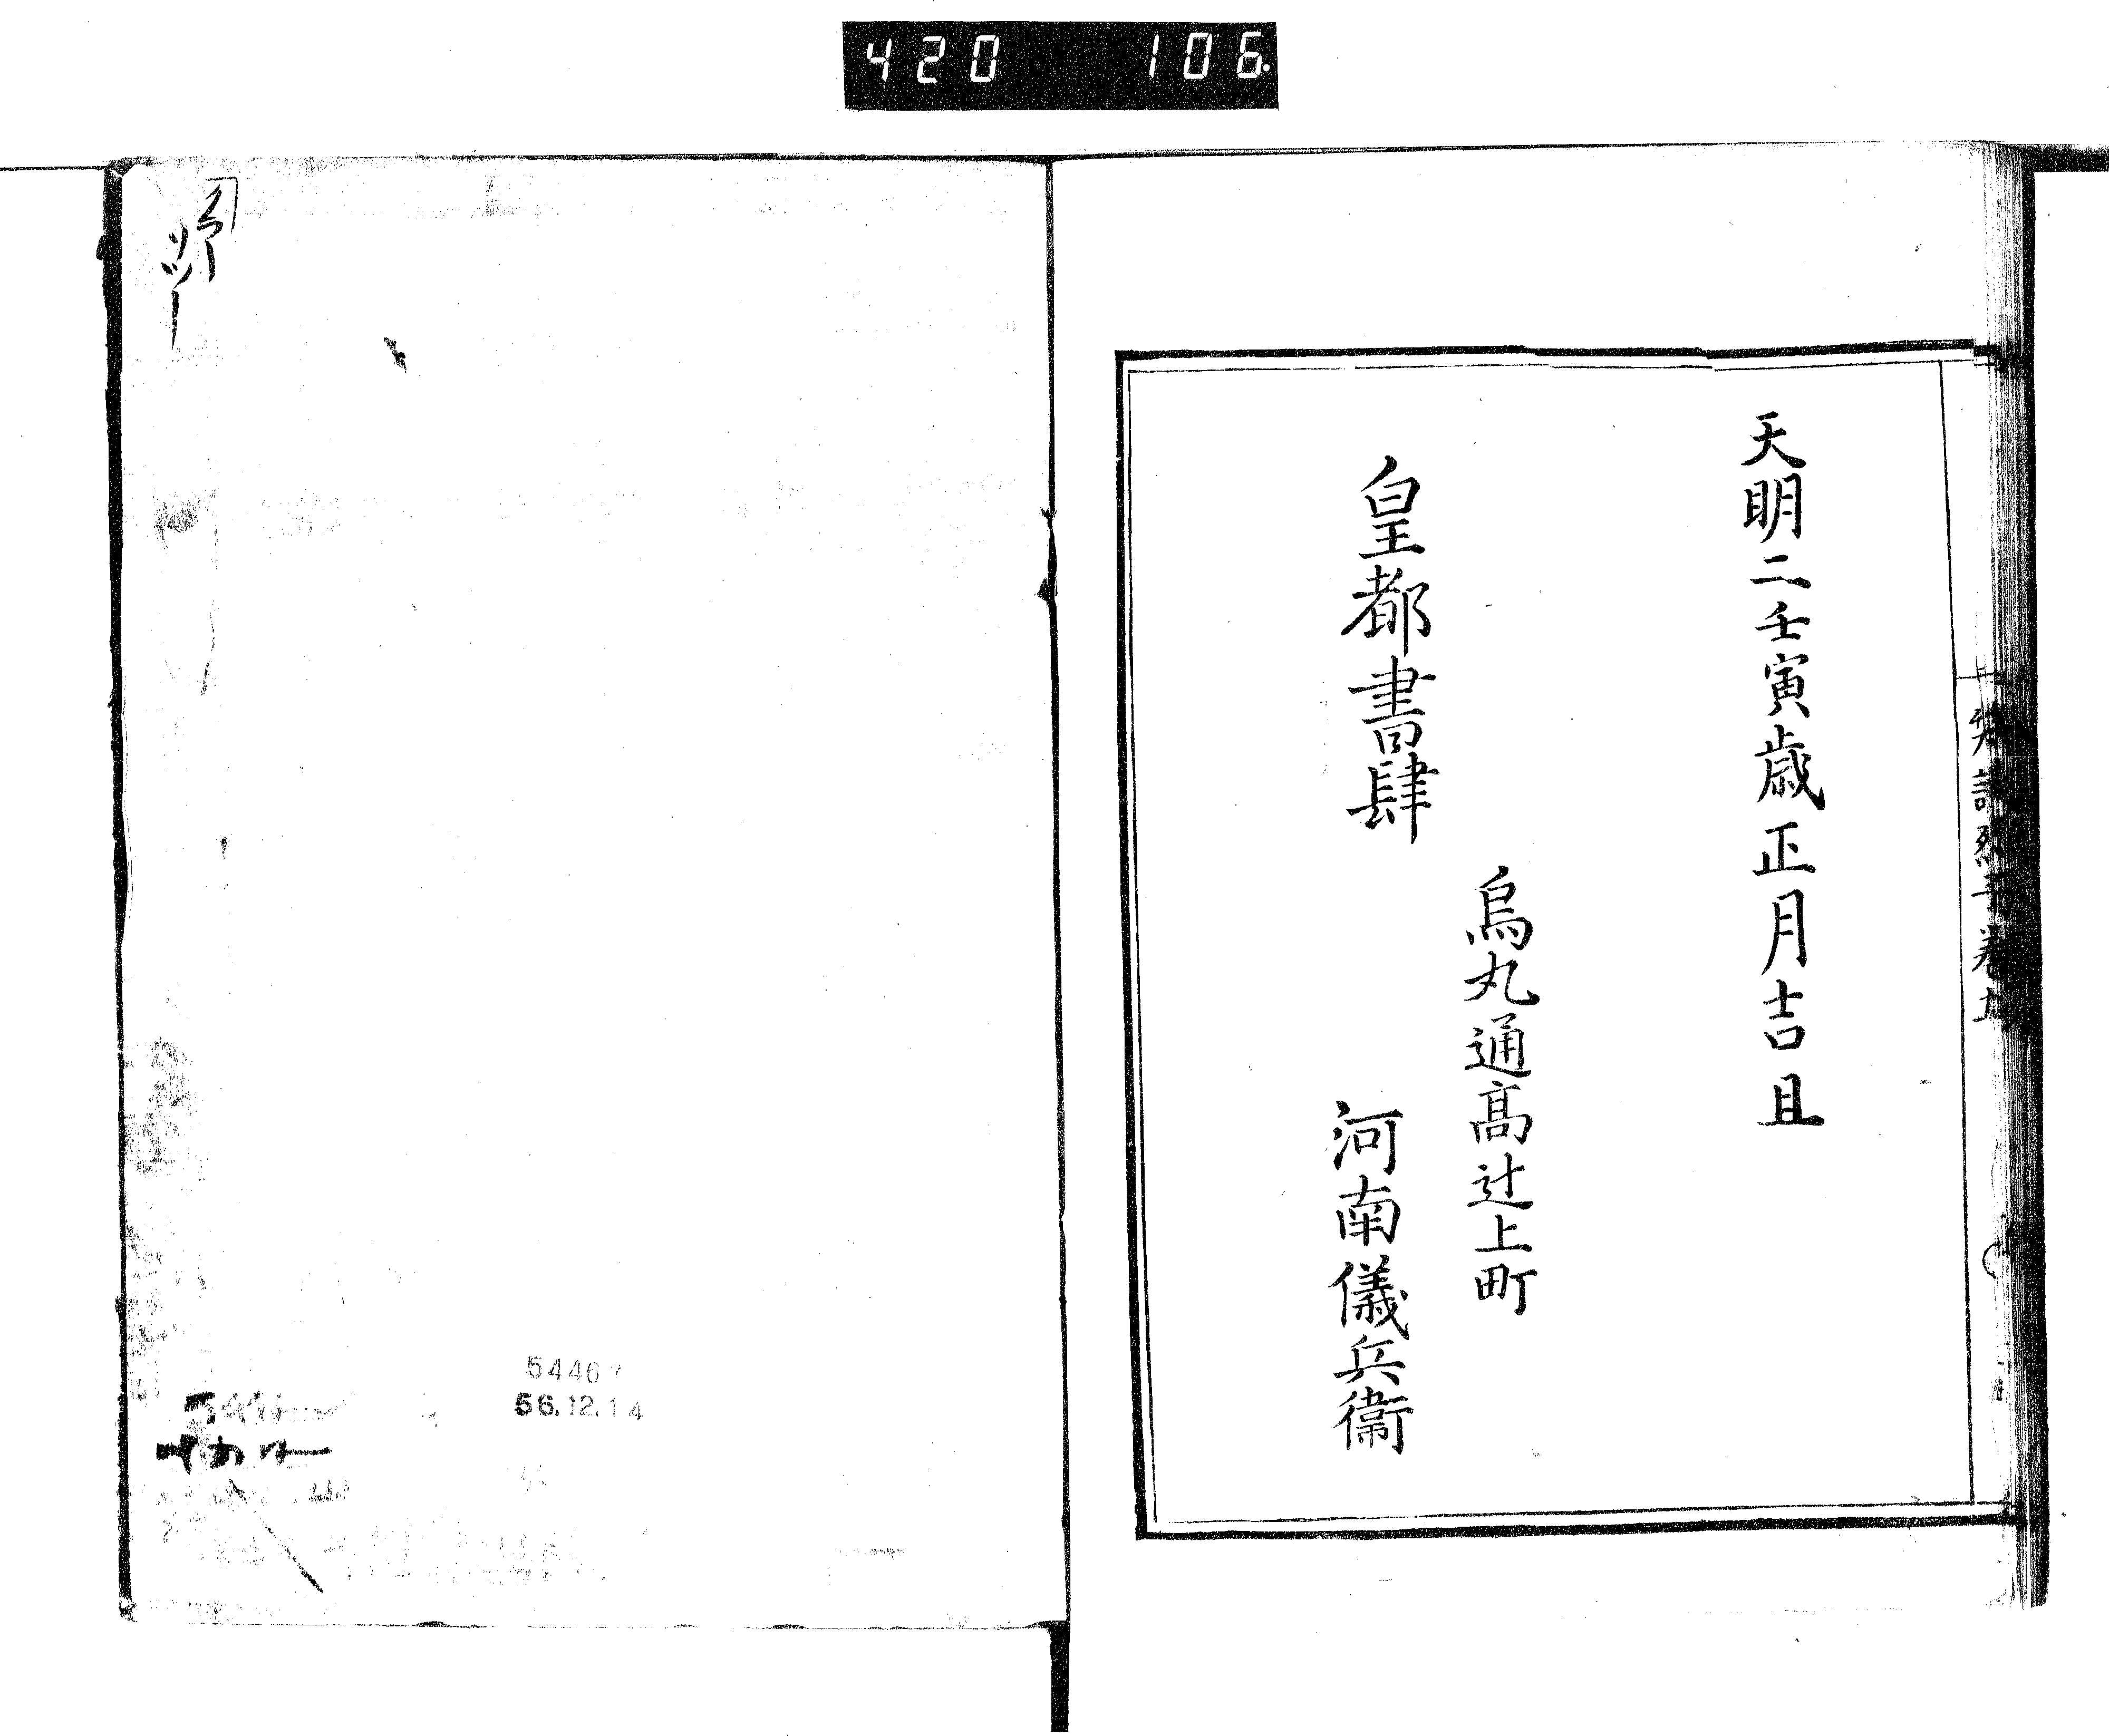 420 106.
天明二壬寅歳正月吉且
烏丸通髙辻上町
皇都書肆
河南儀兵衞
56.12.14